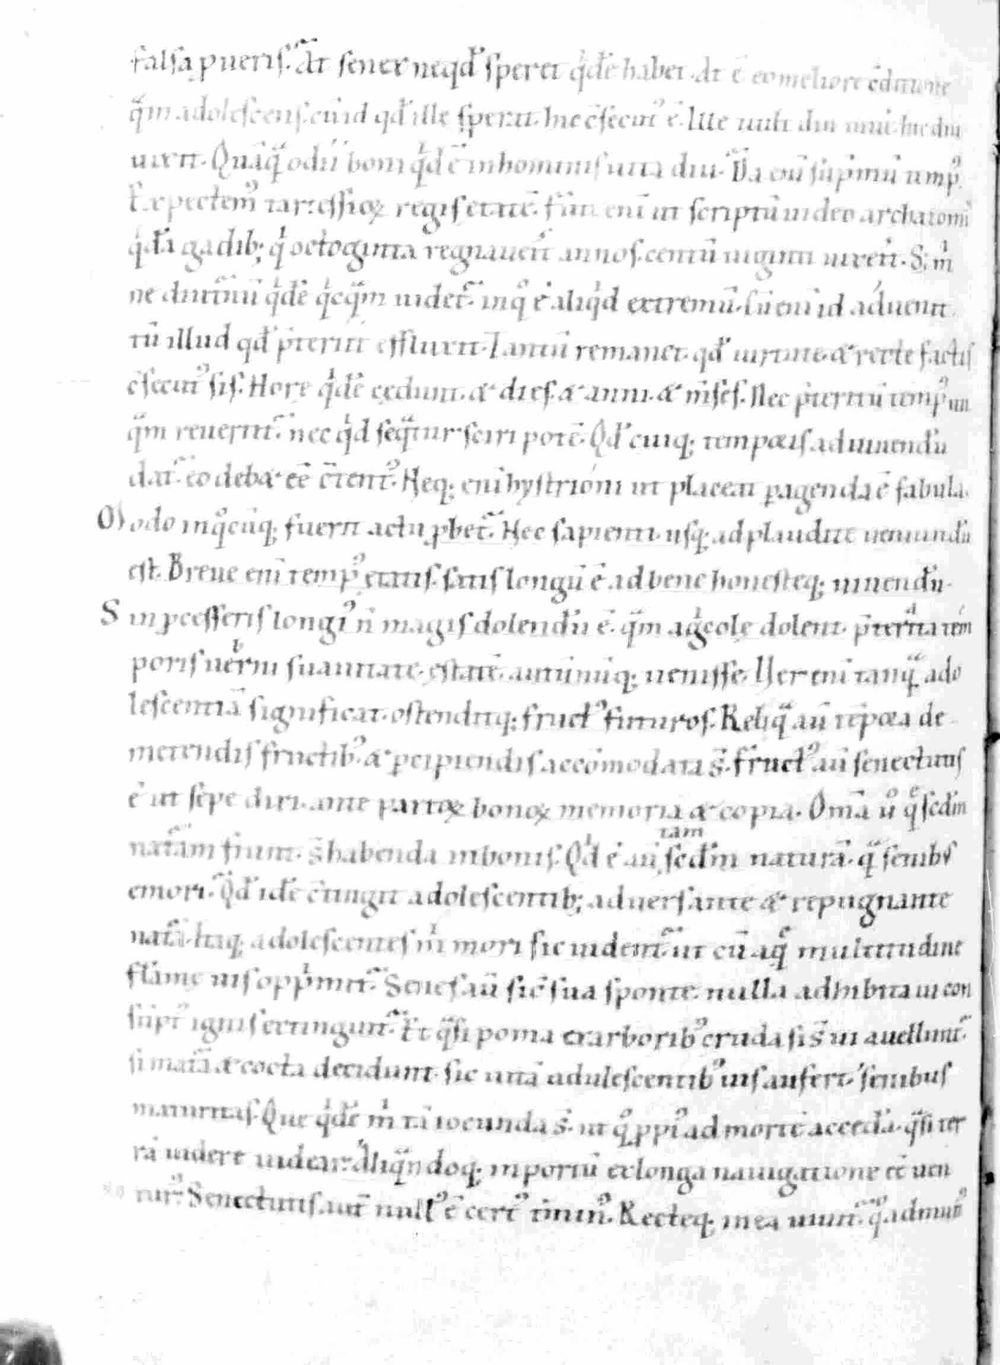 falsa pueris. At senex neqd̄ speret q̇dē habet. At ē eo meliore c̄ditione
q̄m adolescens. cū id qd̄ ille sperat. hic c̄secut᾽ ē. Ille uult diu uiuē. hic diu
uixit. Quāq̄ o dii boni q̇d ē in hominis uita diu. Da enī sup̄mū tēmp᾽.
Expectem᾽ tartessioꝝ regis etatē. fuit enī ut scriptū uideo archatoni᾽
q̇dā gadib; q̇ octoginta regnauerat̄ annos. centū uiginti uixerat̄. S; ṁ
ne diut̄nū q̇dē q̇cq̄m uidet̄. inq᾽ ē aliq̇d extremū. Cū enī id aduenit.
tū illud qd̄ p̄teriit effluxit. Tantū remanet. qd̄ uirtute. & recte factis
c̄secut᾽ sis. Hore q̇dē cedunt. & dies. & anni. & m̄ses. Nec p̄teritū temp᾽ un
q̄m reuertit̄. nec q̇d seq̄tur sciri potē. Qd̄ cuiq; temporis ad uiuendū
dat̄. eo debet eē c̄tent᾽. Neq; enī hystrioni ut placeat peragenda ē fabula.
Modo inq᾽cūq; fuerit actu pbet̄. Nec sapienti usq; ad plaudite ueniundū
est. Breue enī temp᾽ etatis. satis longū ē ad bene honesteq; uiuendū.
Sin pcesseris longi᾽ n̄ magis dolendū ē. q̄m agricole dolent. p̄terita tem
poris uerni suauitate. estatē. autūnūq; uenisse. Uer enī tanq̄ ado
lescentiā significat. ostenditq; fruct᾽ futuros. Reliq̄ aū tēpora de
metendis fructib᾽ & pcipiendis accōmodata s̄. fruct᾽ aū senectutis
ē ut sepe dixi. ante partoꝝ bonoꝝ memoria & copia. Omā u᾽ q̄ scdm̄
nat̄am fiunt. s̄ habenda in bonis. Qd ē aū tam scdm̄ naturā. q̄ senib᾽
emori. Qd̄ idē c̄tingit adolescentib; aduersante & repugnante
nat̄a. Itaq; adolescentes ṁ mori sic uident̄. ut cū aq̄ multitudine
flāme uis opp̄mit̄. Senes aū sic̄ sua sponte. nulla adhibita ui con
sūpt᾽ ignis extinguit̄. Et q̄si poma ex arborib᾽ cruda si s̄ ui auellunt̄.
si mat̄a & cocta decidunt. sic uitā adulescentib᾽ uis aufert. senibus
maturitas. Que q̇dē ṁ tā iocunda s̄. ut q᾽ ppi᾽ ad mortē accedā. q̄si ter
rā uidere uidear. Aliq̄ndoq; in portū ex longa nauigatione eē uen
tur᾽. Senectutis aut̄ null᾽ ē cert᾽ t̄min᾽. Recteq; in ea uiuit̄. q᾽ad mun᾽